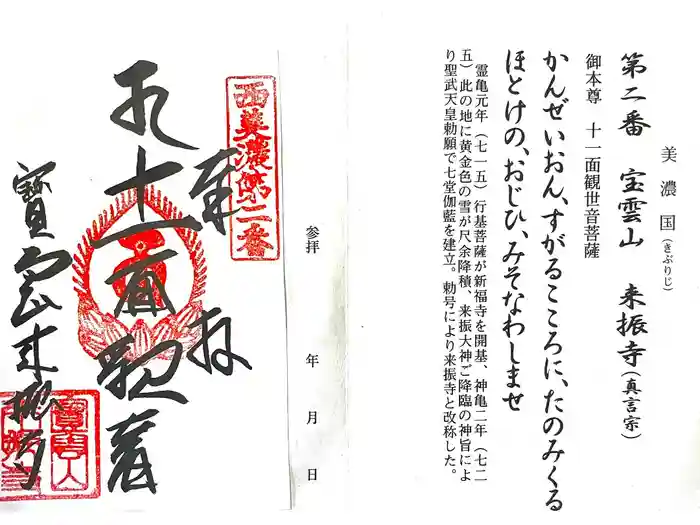 美濃国(きぶりじ)
第二番 宝雲山 来振寺(真言宗)
御本尊 十一面観世音菩薩
かんぜいおん、すがるこころに、たのみくる
ほとけの、おじひ、みそなわしませ
霊亀元年(七一五)行基菩薩が新福寺を開基、神亀二年(七二
五)此の地に黄金色の雪が尺余降積、来振大神ご降臨の神旨によ
り聖武天皇勅願で七堂伽藍を建立。勅号により来振寺と改称した。
参拝 年 月 日
西美濃第二番
奉拝
十一面観音
寳雲山来振寺